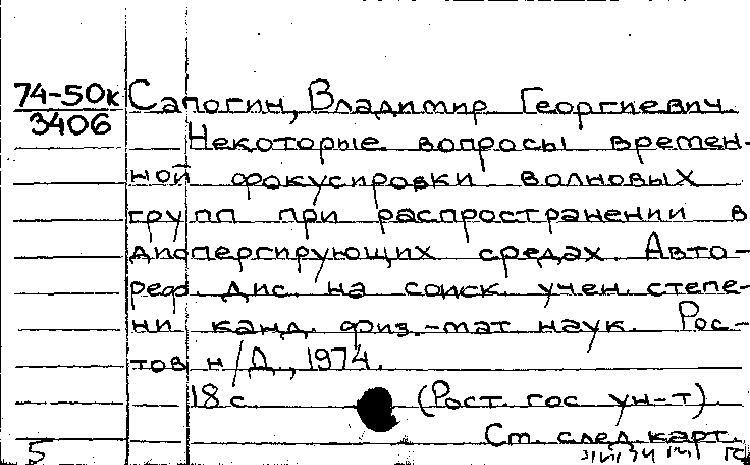 74-50к Сапогин, Владимир Георгиевич.
3406
Некоторые вопросы времен-
ной фокусировки волновых
групп при распространении в
диспергирующих средах. Авто-
реф. дис. на соиск. учен. степе-
ни канд. физ.-мат наук. Рос-
тов н/Д., 1974.
18 с. (Рост. гос ун-т).
Cm. след. карт.
5